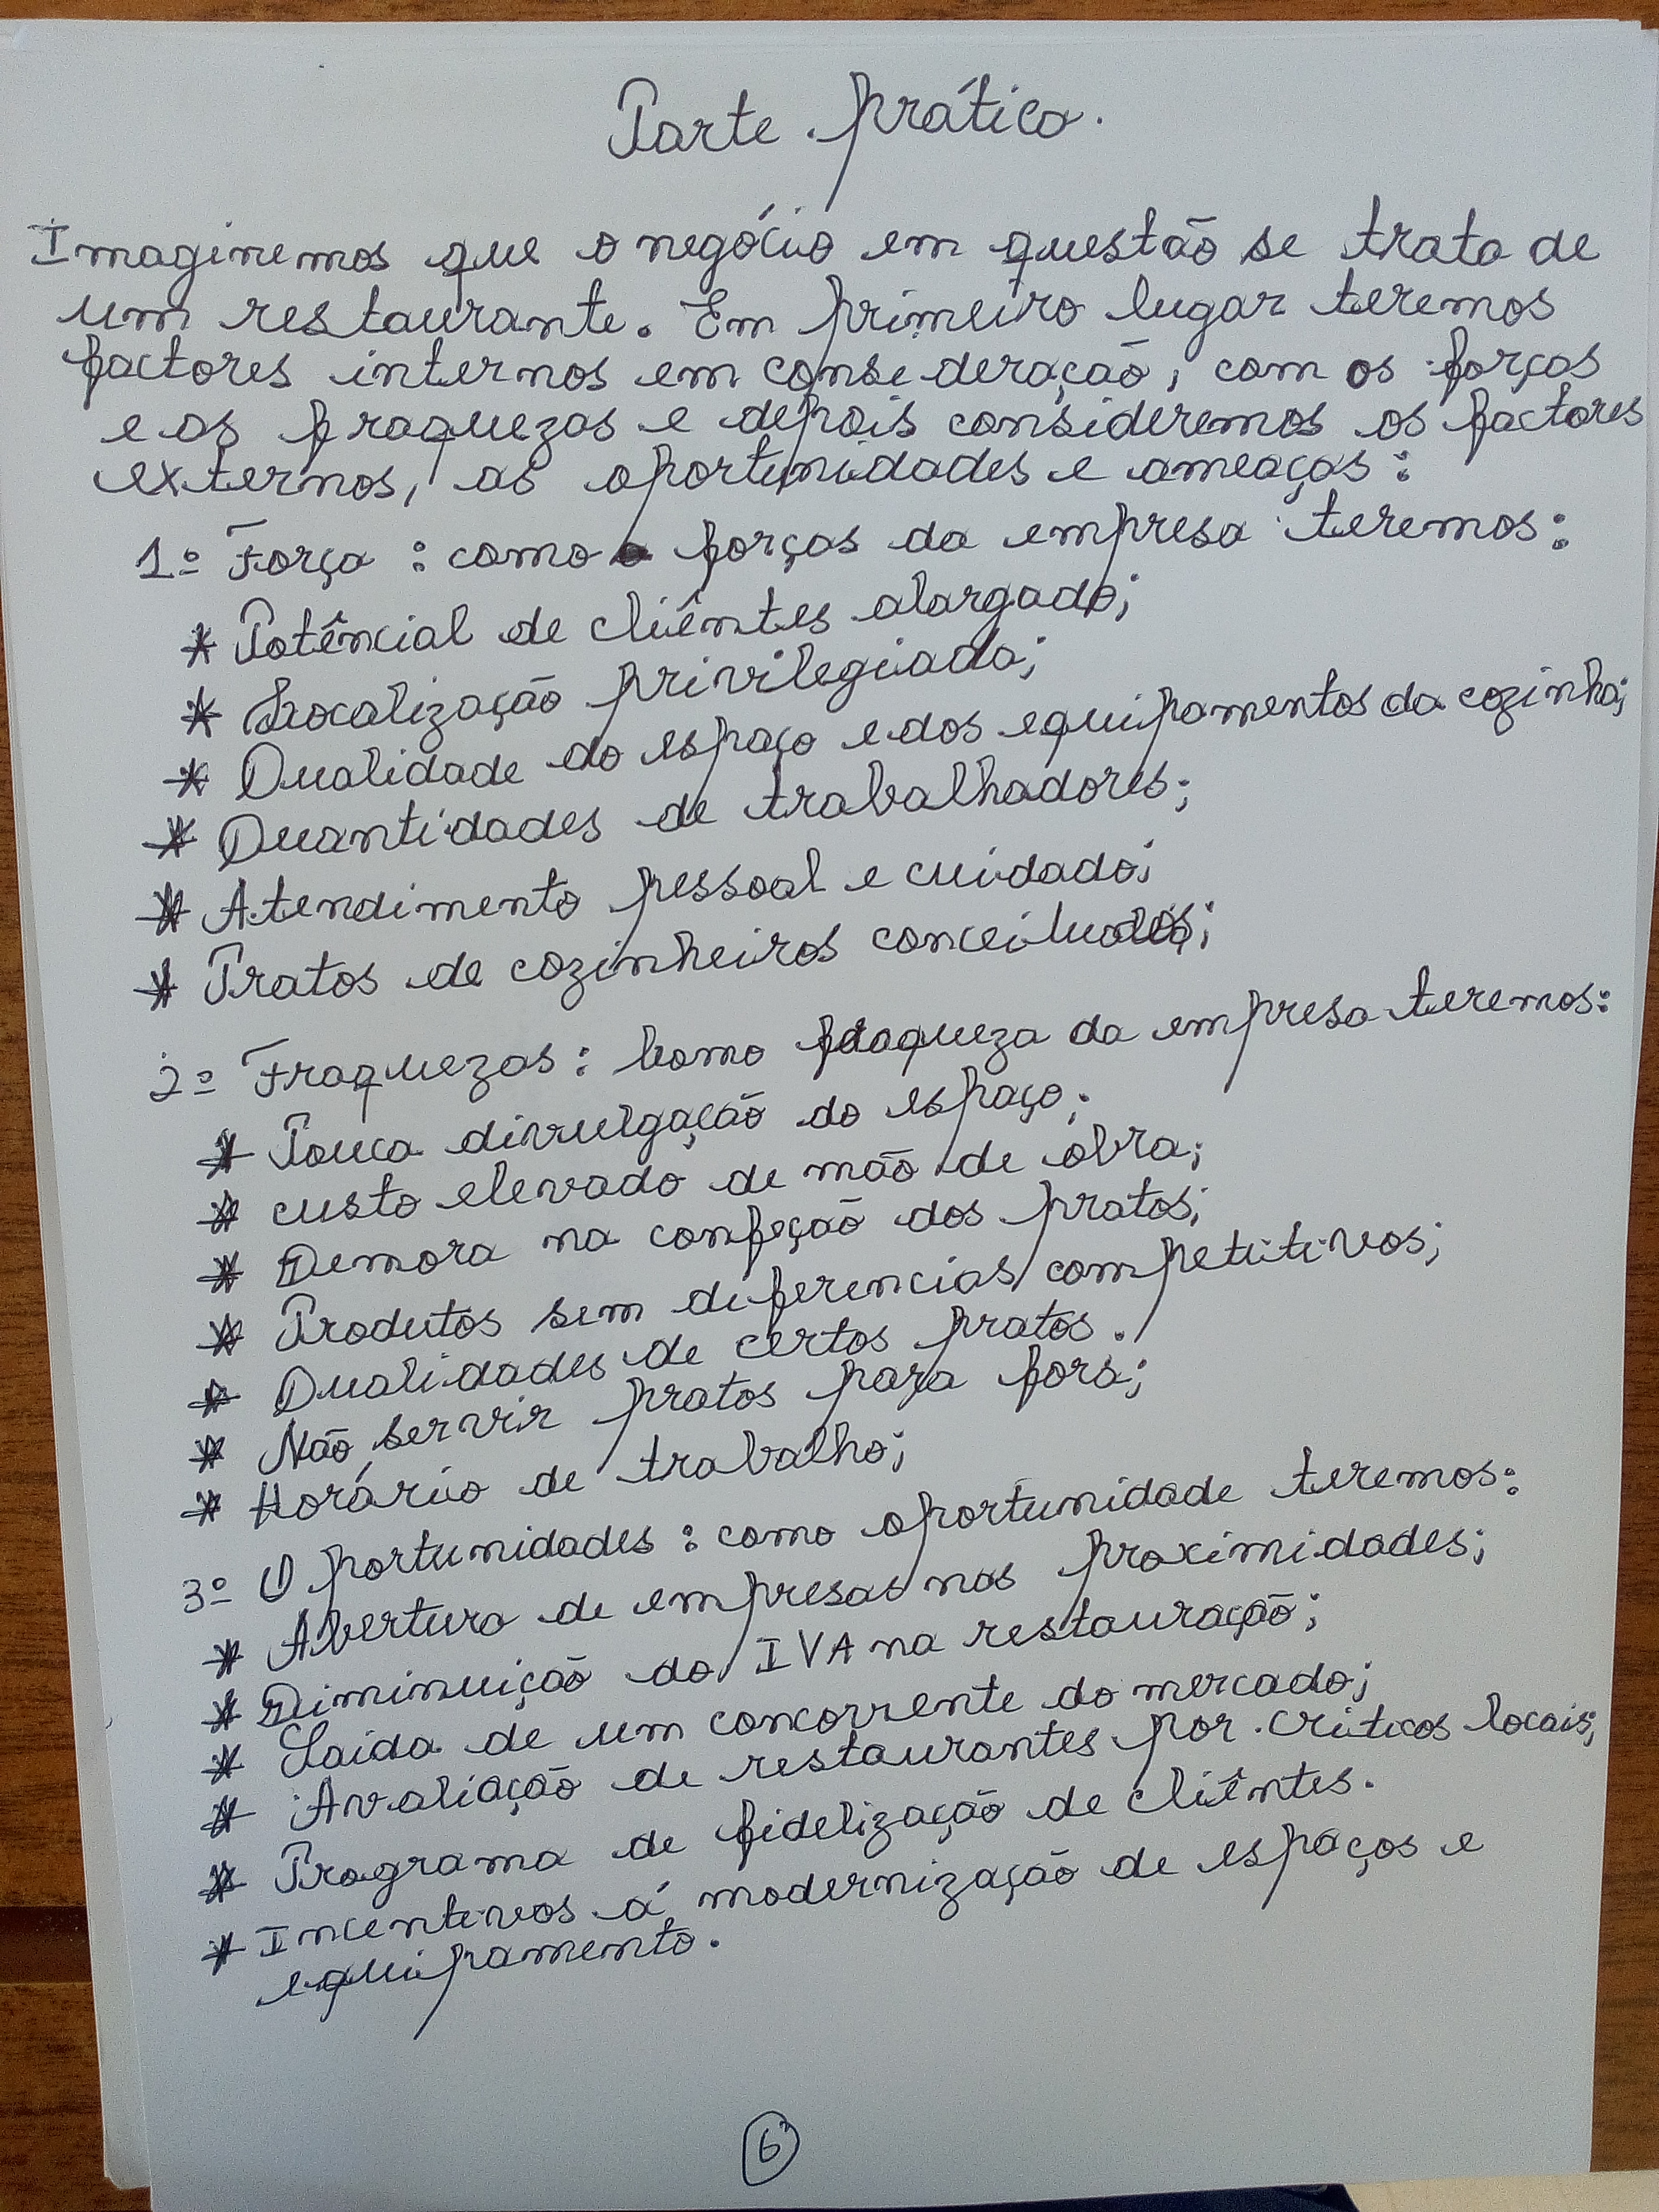 Parte prática.
Imaginemos que o negócio em questão se trata de
um restaurante. Em primeiro lugar teremos
factores internos em consideração, com as forças
e as fraquezas e depois consideremos os factores
externos, as oportunidades e ameaças:
1º Força : como forças da empresa teremos:
* Potêncial de cliêntes alargado;
* Localização privilegiada;
* Qualidade do espaço e dos equipamentos da cozinha;
* Quantidades de trabalhadores;
* Atendimento pessoal e cuidado;
* Pratos de cozinheiros conceituados;
2º Fraquezas : Como fraqueza da empresa teremos:
* Pouca divulgação do espaço;
* custo elevado de mão de obra;
* Demora na confeção dos pratos;
* Produtos sem diferencias competitivos;
* Qualidades de certos pratos.
* Não servir pratos para fora;
* Horário de trabalho;
3º Oportunidades : como oportunidade teremos:
* Abertura de empresas nas proximidades;
* Diminuição do IVA na restauração;
* Saida de um concorrente do mercado;
* Avaliação de restaurantes por criticos locais;
* Programa de fidelização de cliêntes.
* Incentivos á modernização de espaços e
equipamento.
6